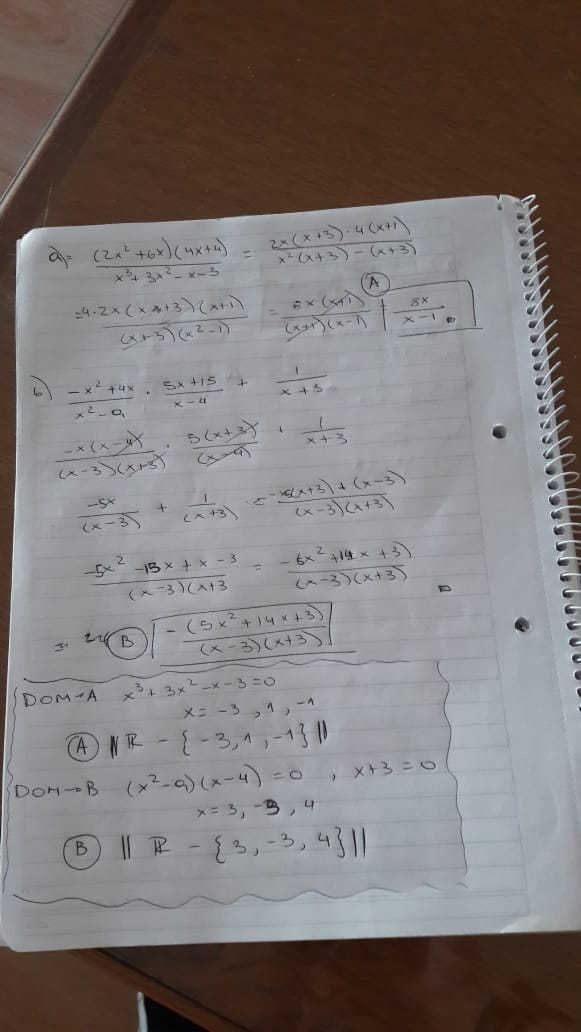 a) = (2x² + 6x)(4x+4) / x³ + 3x² - x - 3 = 2x(x+3) · 4(x+1) / x²(x+3) - (x+3)
= 4·2x(x+3)(x+1) / (x+3)(x²-1) = 8x(x+1) / (x+1)(x-1) = (A) 8x / x-1
b) -x² + 4x / x² - 9 · 5x + 15 / x - 4 + 1 / x + 3
-x(x-4) / (x-3)(x+3) · 5(x+3) / (x-4) + 1 / x+3
-5x / (x-3) + 1 / (x+3) = (x+3) + (x-3) / (x-3)(x+3)
-5x² - 15x + x - 3 / (x-3)(x+3 = x² + 14x + 3) / (x-3)(x+3)
(B) -(5x² + 14x + 3) / (x-3)(x+3)
DOM→A x³ + 3x² - x - 3 = 0
x = -3, 1, -1
(A) || R - {-3, 1, -1} ||
DOM→B (x² - 9)(x-4) = 0, x+3 = 0
x = 3, -3, 4
(B) || R - {3, -3, 4} ||